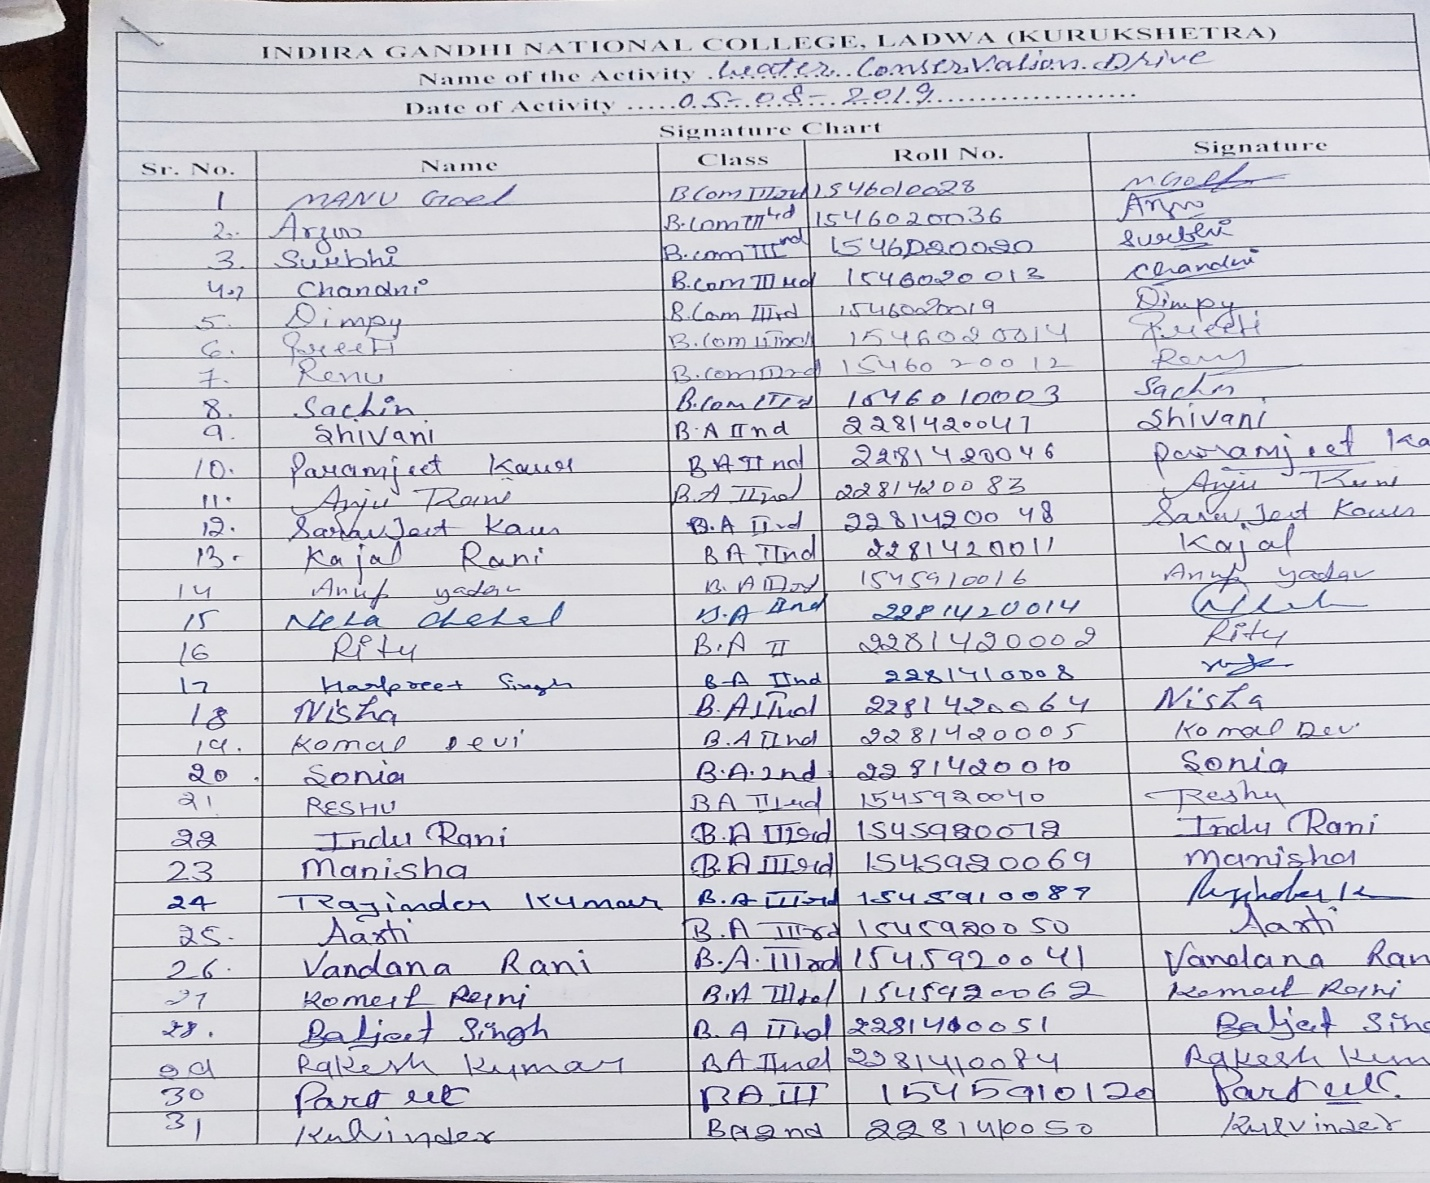 INDIRA GANDHI NATIONAL COLLEGE, LADWA (KURUKSHETRA)
Name of the Activity .Water Conservation Drive
Date of Activity .....05-08-2019......................
Signature Chart
Sr. No. Name Class Roll No. Signature
1 MANU Goel B Com IIIrd 1546010028 MGoel
2. Arzoo B.Com IIIrd 1546020036 Arzoo
3. Surbhi B.com IIIrd 1546020020 Surbhi
4. Chandni B.com IIIrd 1546020013 Chandni
5. Dimpy B.Com IIIrd 1546020019 Dimpy
6. Preeti B.Com IIIrd 1546020014 Preeti
7. Renu B.com IIIrd 1546020012 Renu
8. Sachin B.Com IIIrd 1546010003 Sachin
9. Shivani B.A IInd 2281420047 Shivani
10. Paramjeet Kaur BA IInd 2281420046 Paramjeet Ka
11. Anju Rani B.A IInd 2281420083 Anju Rani
12. Saravjeet Kaur B.A IInd 2281420048 Saravjeet Kaur
13. Kajal Rani BA IInd 2281420011 Kajal
14 Anuf yadav B.A IIIrd 1545910016 Anuf yadav
15 Neha chehal B.A IInd 2281420014
16 Rity B.A II 2281420002 Rity
17 Harpreet Singh B-A IInd 2281410008
18 Nisha B.A IInd 2281420064 Nisha
19. Komal Devi B.A IInd 2281420005 Komal Devi
20. Sonia B.A.2nd 2281420010 Sonia
21 RESHU BA IIIrd 1545920040 Reshu
22 Indu Rani B.A IIIrd 1545920072 Indu Rani
23 Manisha B.A IIIrd 1545920069 Manisha
24 Rajinder Kumar B.A IIIrd 1545910087
25. Aarti B.A IIIrd 1545920050 Aarti
26. Vandana Rani B.A. IIIrd 1545920041 Vandana Ran
27 Komal Rani B.A IIIrd 1545920062 Komal Rani
28. Baljeet Singh B.A IInd 2281410051 Baljeet Sing
29 Rakesh Kumar BA IInd 2281410084 Rakesh Kum
30 Parteek BA III 1545910120 Parteek
31 Kulvinder BA 2nd 2281410050 Kulvinder